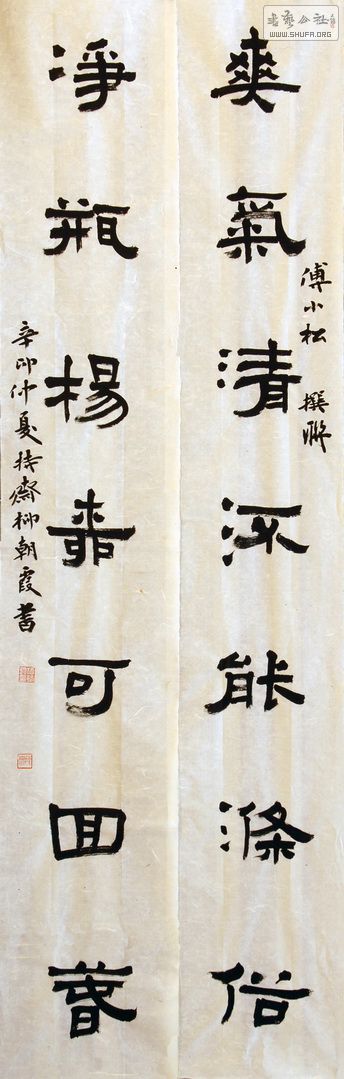 爽氣清流能滌俗
傅小松 撰聯
淨瓶楊柳可回春
辛卯仲夏 持齋柳朝霞書
书艺公社
WWW.SHUFA.ORG